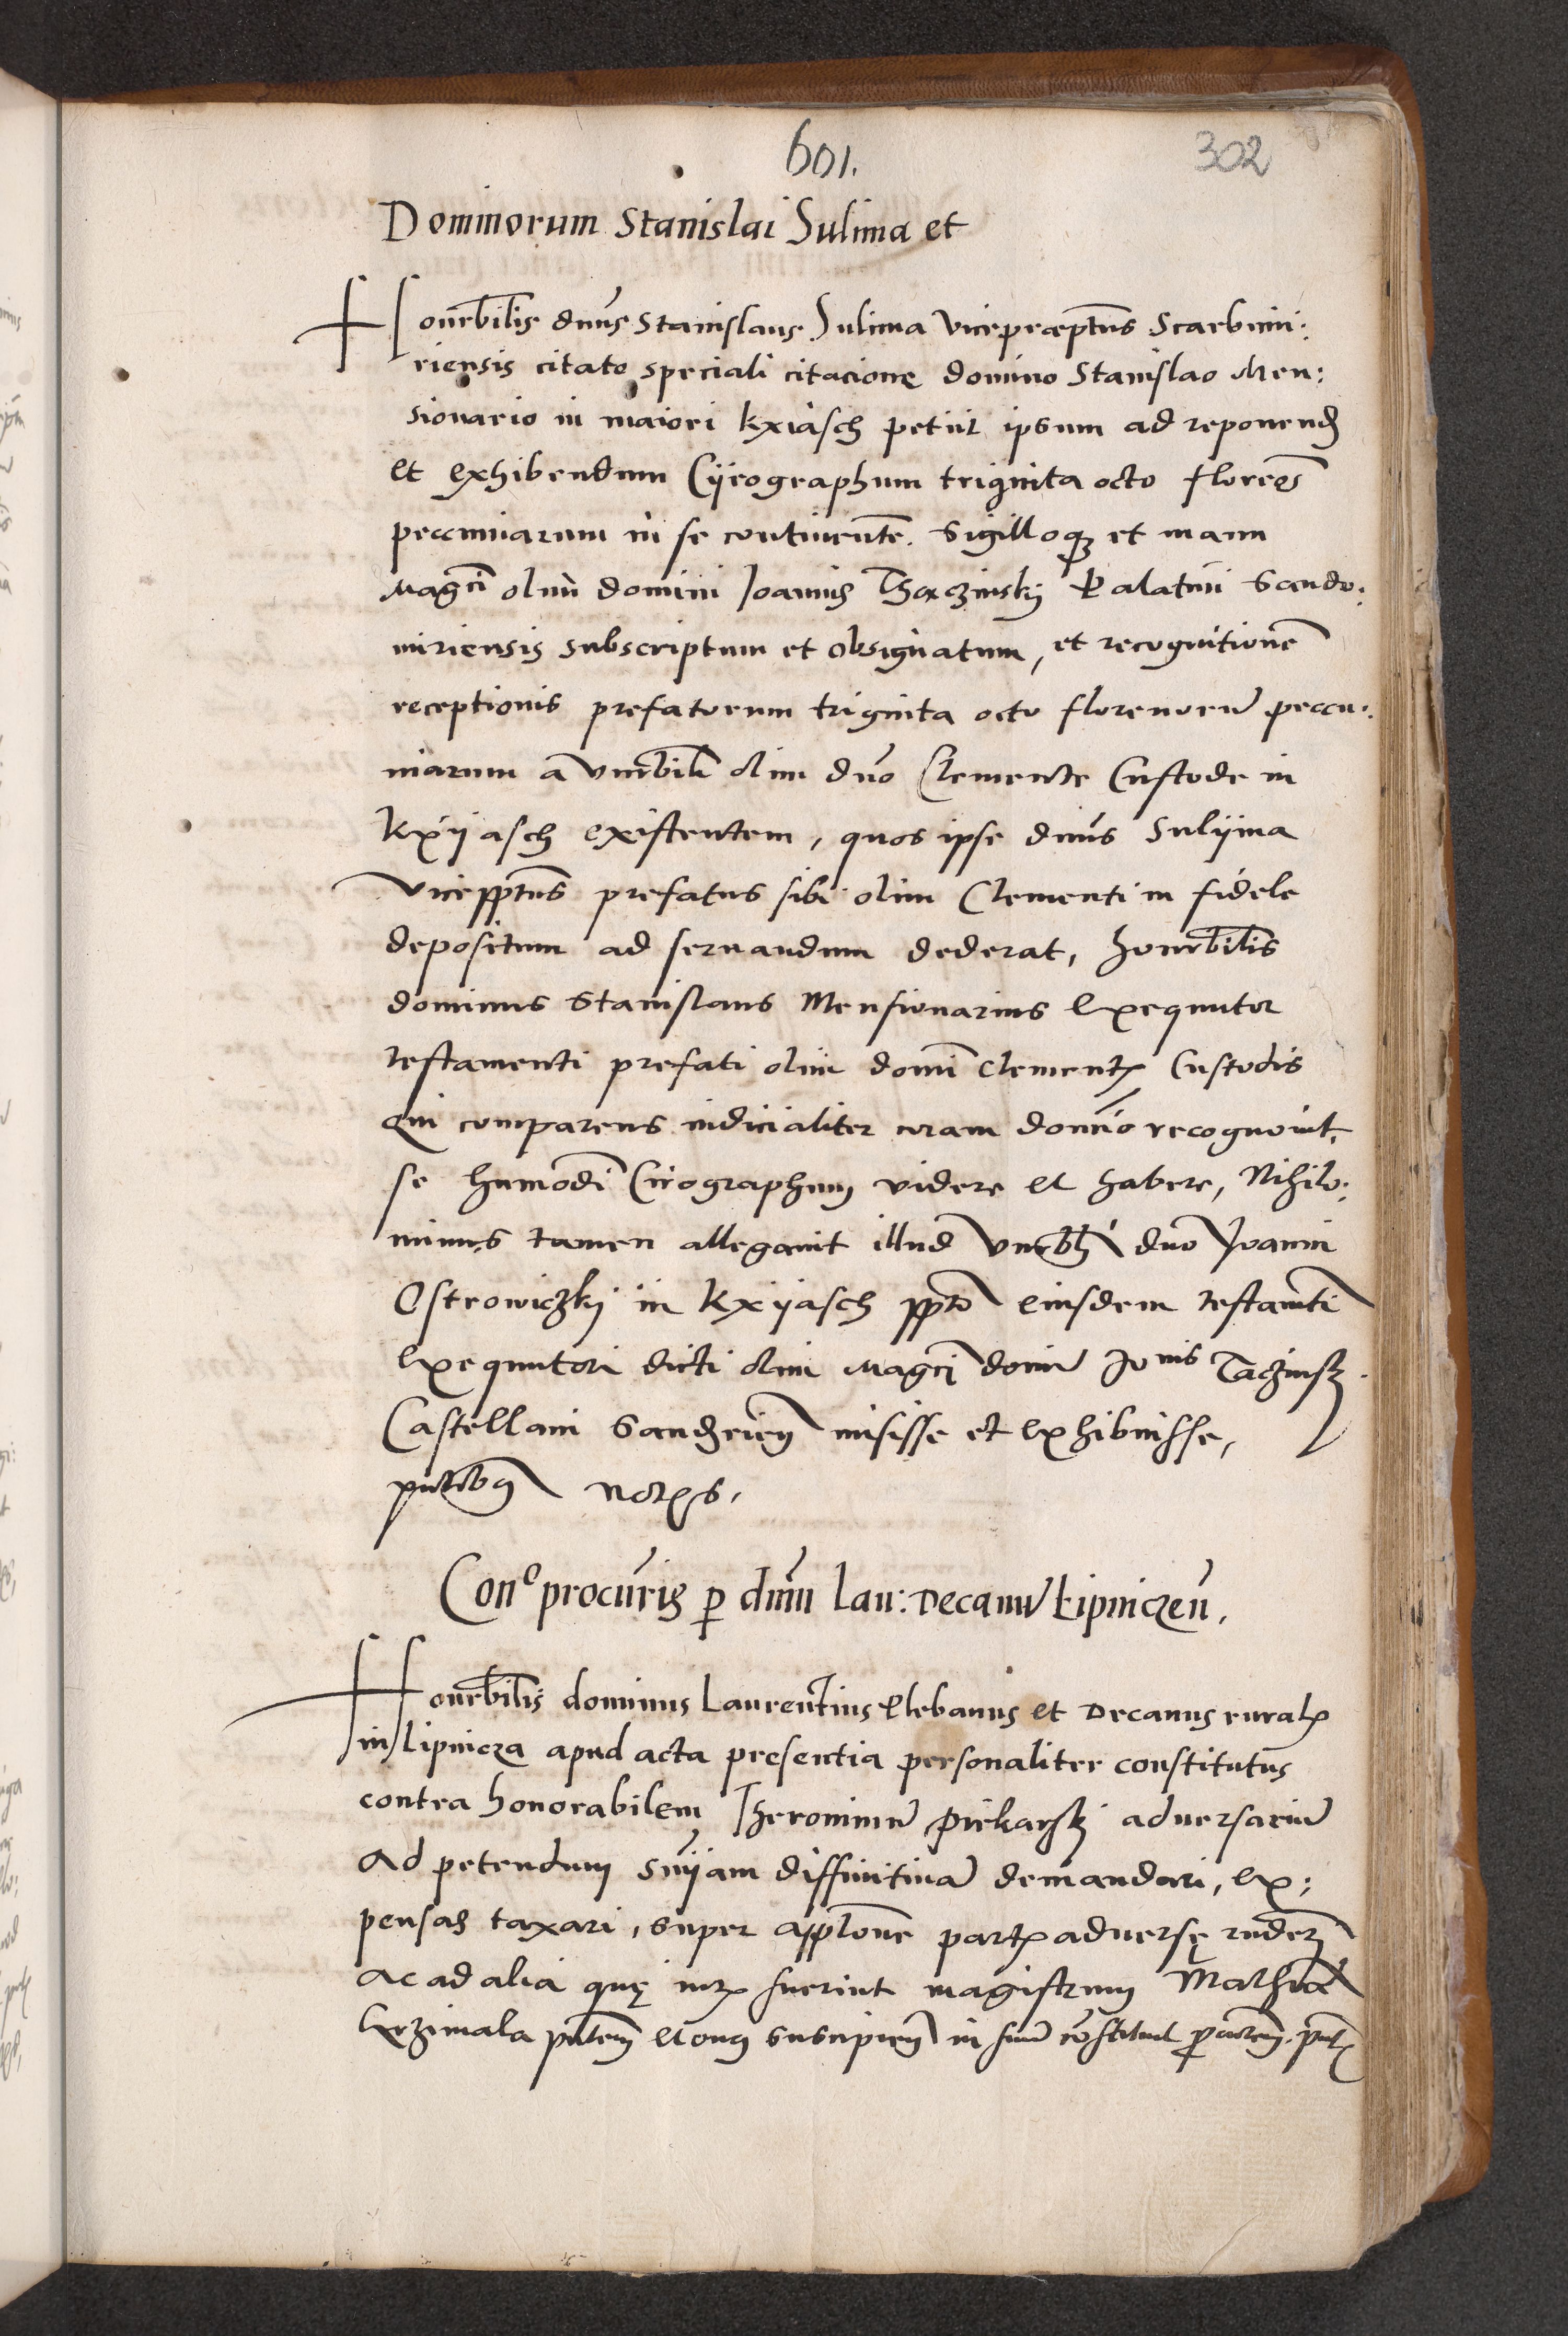 601.
302
Dominorum Stanislai Sulima et
Honrbilis dnus Stanislaus Sulima vicepręptus Scarbimi:
riensis citato speciali citacione domino Stanislao Men:
sionario in maiori kxiasch petiit ipsum ad reponend
et exhibendum Cijrographum triginta octo florēos
peccuniarum in se continentē. Sigilloqꝫ et manu
Magci olim domini Joannis Palatini Sando:
miriensis subscriptum et obsignatum, et recognitionē
receptionis prefatorum triginta octo florenorū peccu:
niarum a vnrbili olim dno Clemente Custode in
kxijasch existentem, quos ipse dnus Sulijma
vicepptus prefatus sibi olim Clementi in fidele
depositum ad seruandum dederat, honrbilis
dominus Stanislaus Mensionarius Exequutor
testamenti prefati olim domi Clementis Custodis
Qui comparens iudicialiter coram domino recognouit,
se hmodi Cirographum videre et habere, Nihilo:
minus tamen allegauit illud vnrbli dno Joanni
Ostrowiczkj in kxijasch ppto eiusdem testamti
Exequutori dicti olim Magci domi Jonis Taczinsk
Castellani Sandrien misisse et exhibuisse,
pntibus
Cone procuris p dnm Lau: Decanū Lipniczeñ.
Honrbilis dominus Laurentius Plebanus et Decanus ruralis
in Lipnicza apud acta presentia personaliter constitutus
contra honorabilem Iheronimū Piekarsk aduersariū
Ad petendum snijam diffinitiuā demandari, ex:
pensas taxari, super applone partis aduersę
ac ad alia quę fuerint magistrum Mathiā
pntem et onus suscipien in suū costituit pntis